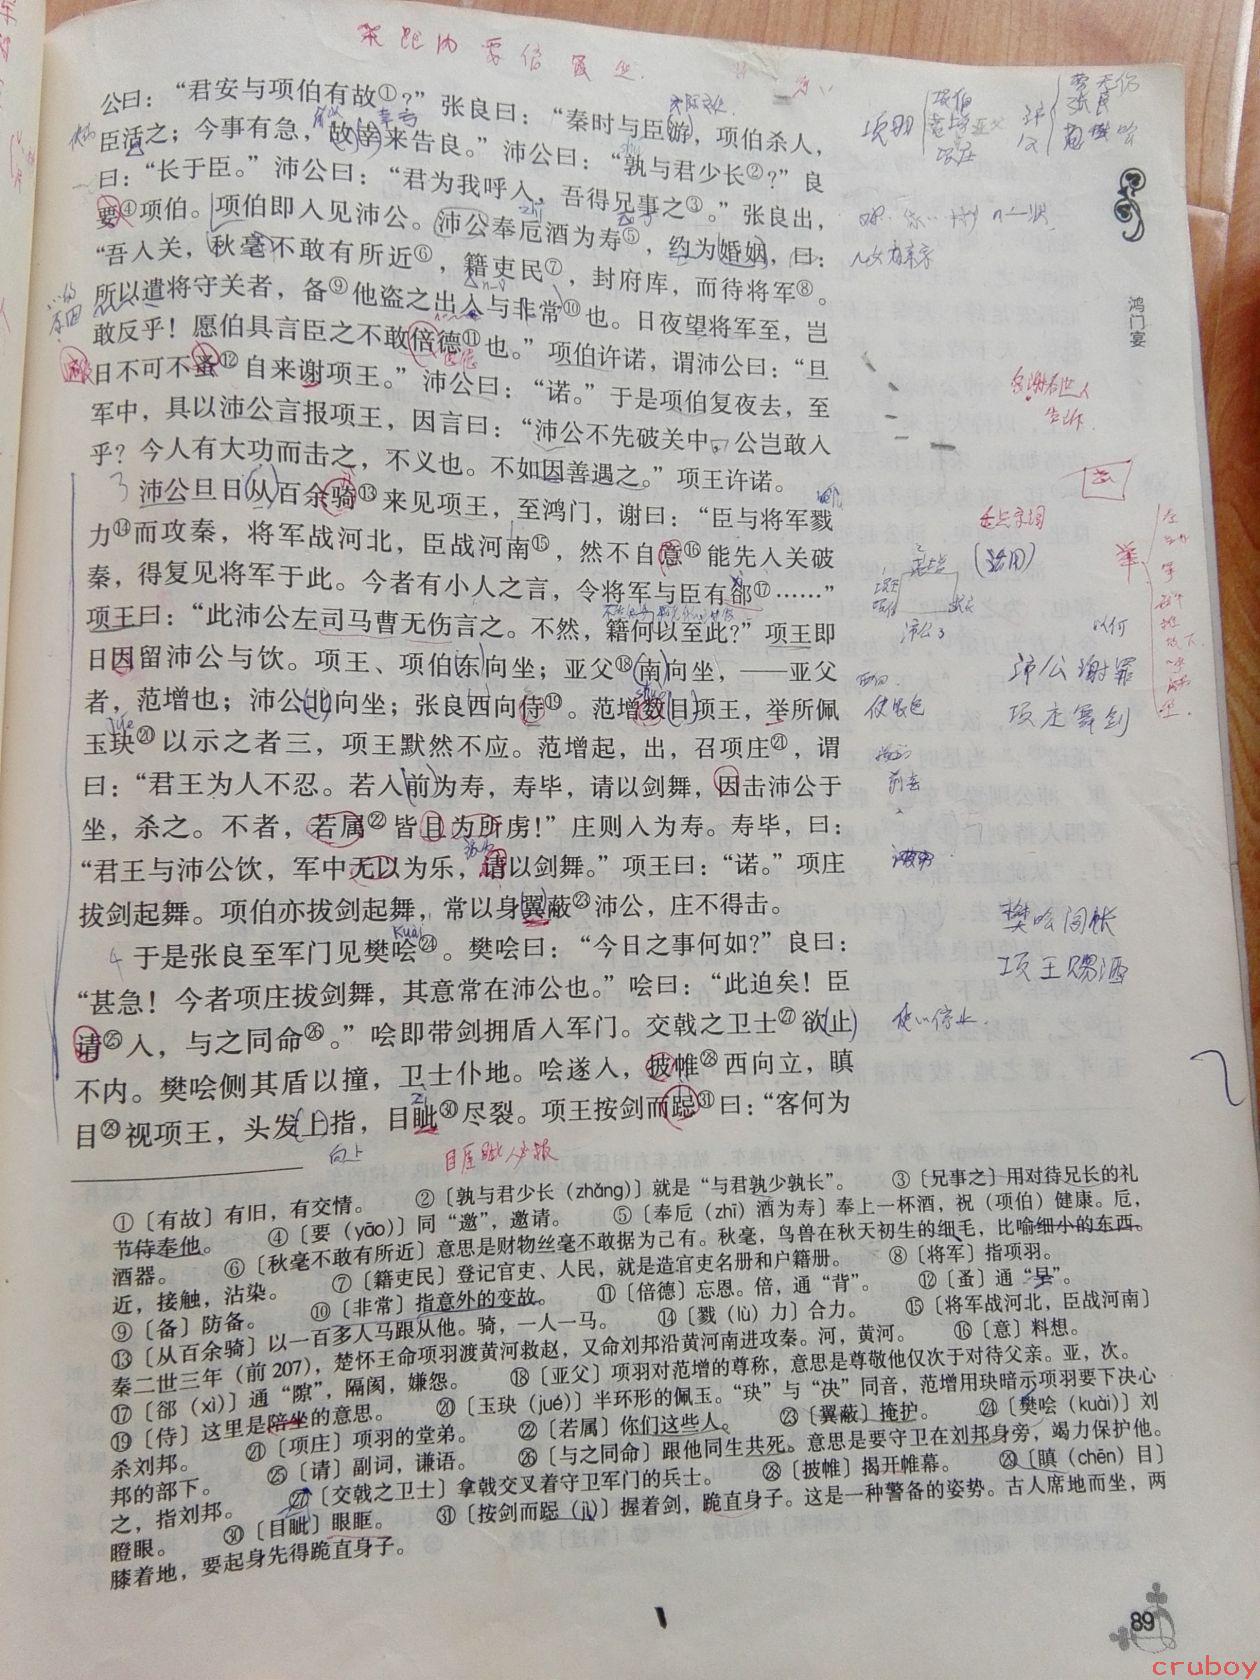 公曰：“君安与项伯有故①？”张良曰：“秦时与臣游，项伯杀人，
臣活之；今事有急，故幸来告良。”沛公曰：“孰与君少长②？”良
曰：“长于臣。”沛公曰：“君为我呼入，吾得兄事之③。”张良出，
要④项伯。项伯即入见沛公。沛公奉卮酒为寿⑤，约为婚姻，曰：
“吾入关，秋毫不敢有所近⑥，籍吏民⑦，封府库，而待将军⑧。
所以遣将守关者，备⑨他盗之出入与非常⑩也。日夜望将军至，岂
敢反乎！愿伯具言臣之不敢倍德⑪也。”项伯许诺，谓沛公曰：“旦
日不可不蚤⑫自来谢项王。”沛公曰：“诺。”于是项伯复夜去，至
军中，具以沛公言报项王，因言曰：“沛公不先破关中，公岂敢入
乎？今人有大功而击之，不义也。不如因善遇之。”项王许诺。
沛公旦日从百余骑⑬来见项王，至鸿门，谢曰：“臣与将军戮
力⑭而攻秦，将军战河北，臣战河南⑮，然不自意⑯能先入关破
秦，得复见将军于此。今者有小人之言，令将军与臣有郤⑰……”
项王曰：“此沛公左司马曹无伤言之。不然，籍何以至此？”项王即
日因留沛公与饮。项王、项伯东向坐；亚父⑱南向坐，——亚父
者，范增也；沛公北向坐；张良西向侍⑲。范增数目项王，举所佩
玉玦⑳以示之者三，项王默然不应。范增起，出，召项庄㉑，谓
曰：“君王为人不忍。若入前为寿，寿毕，请以剑舞，因击沛公于
坐，杀之。不者，若属㉒皆且为所虏！”庄则入为寿。寿毕，曰：
“君王与沛公饮，军中无以为乐，请以剑舞。”项王曰：“诺。”项庄
拔剑起舞。项伯亦拔剑起舞，常以身翼蔽㉓沛公，庄不得击。
于是张良至军门见樊哙㉔。樊哙曰：“今日之事何如？”良曰：
“甚急！今者项庄拔剑舞，其意常在沛公也。”哙曰：“此迫矣！臣
请㉕入，与之同命㉖。”哙即带剑拥盾入军门。交戟之卫士㉗欲止
不内。樊哙侧其盾以撞，卫士仆地。哙遂入，披帷㉘西向立，瞋
目㉙视项王，头发上指，目眦㉚尽裂。项王按剑而跽㉛曰：“客何为
①〔有故〕有旧，有交情。 ②〔孰与君少长（zhǎng）〕就是“与君孰少孰长”。 ③〔兄事之〕用对待兄长的礼
节侍奉他。 ④〔要（yāo）〕同“邀”，邀请。 ⑤〔奉卮（zhī）酒为寿〕奉上一杯酒，祝（项伯）健康。卮，
酒器。 ⑥〔秋毫不敢有所近〕意思是财物丝毫不敢据为己有。秋毫，鸟兽在秋天初生的细毛，比喻细小的东西。
近，接触，沾染。 ⑦〔籍吏民〕登记官吏、人民，就是造官吏名册和户籍册。 ⑧〔将军〕指项羽。
⑨〔备〕防备。 ⑩〔非常〕指意外的变故。 ⑪〔倍德〕忘恩。倍，通“背”。 ⑫〔蚤〕通“早”。
⑬〔从百余骑〕以一百多人马跟从他。骑，一人一马。 ⑭〔戮（lù）力〕合力。 ⑮〔将军战河北，臣战河南〕
秦二世三年（前207），楚怀王命项羽渡黄河救赵，又命刘邦沿黄河南进攻秦。河，黄河。 ⑯〔意〕料想。
⑰〔郤（xì）〕通“隙”，隔阂，嫌怨。 ⑱〔亚父〕项羽对范增的尊称，意思是尊敬他仅次于对待父亲。亚，次。
⑲〔侍〕这里是陪坐的意思。 ⑳〔玉玦（jué）〕半环形的佩玉。“玦”与“决”同音，范增用玦暗示项羽要下决心
杀刘邦。 ㉑〔项庄〕项羽的堂弟。 ㉒〔若属〕你们这些人。 ㉓〔翼蔽〕掩护。 ㉔〔樊哙（kuài）〕刘
邦的部下。 ㉕〔请〕副词，谦语。 ㉖〔与之同命〕跟他同生共死。意思是要守卫在刘邦身旁，竭力保护他。
之，指刘邦。 ㉗〔交戟之卫士〕拿戟交叉着守卫军门的兵士。 ㉘〔披帷〕揭开帷幕。 ㉙〔瞋（chēn）目〕
瞪眼。 ㉚〔目眦〕眼眶。 ㉛〔按剑而跽（jì）〕握着剑，跪直身子。这是一种警备的姿势。古人席地而坐，两
膝着地，要起身先得跪直身子。
鸿门宴
沛公谢罪
项庄舞剑
樊哙闯帐
项王赐酒
向上
89
cruboy